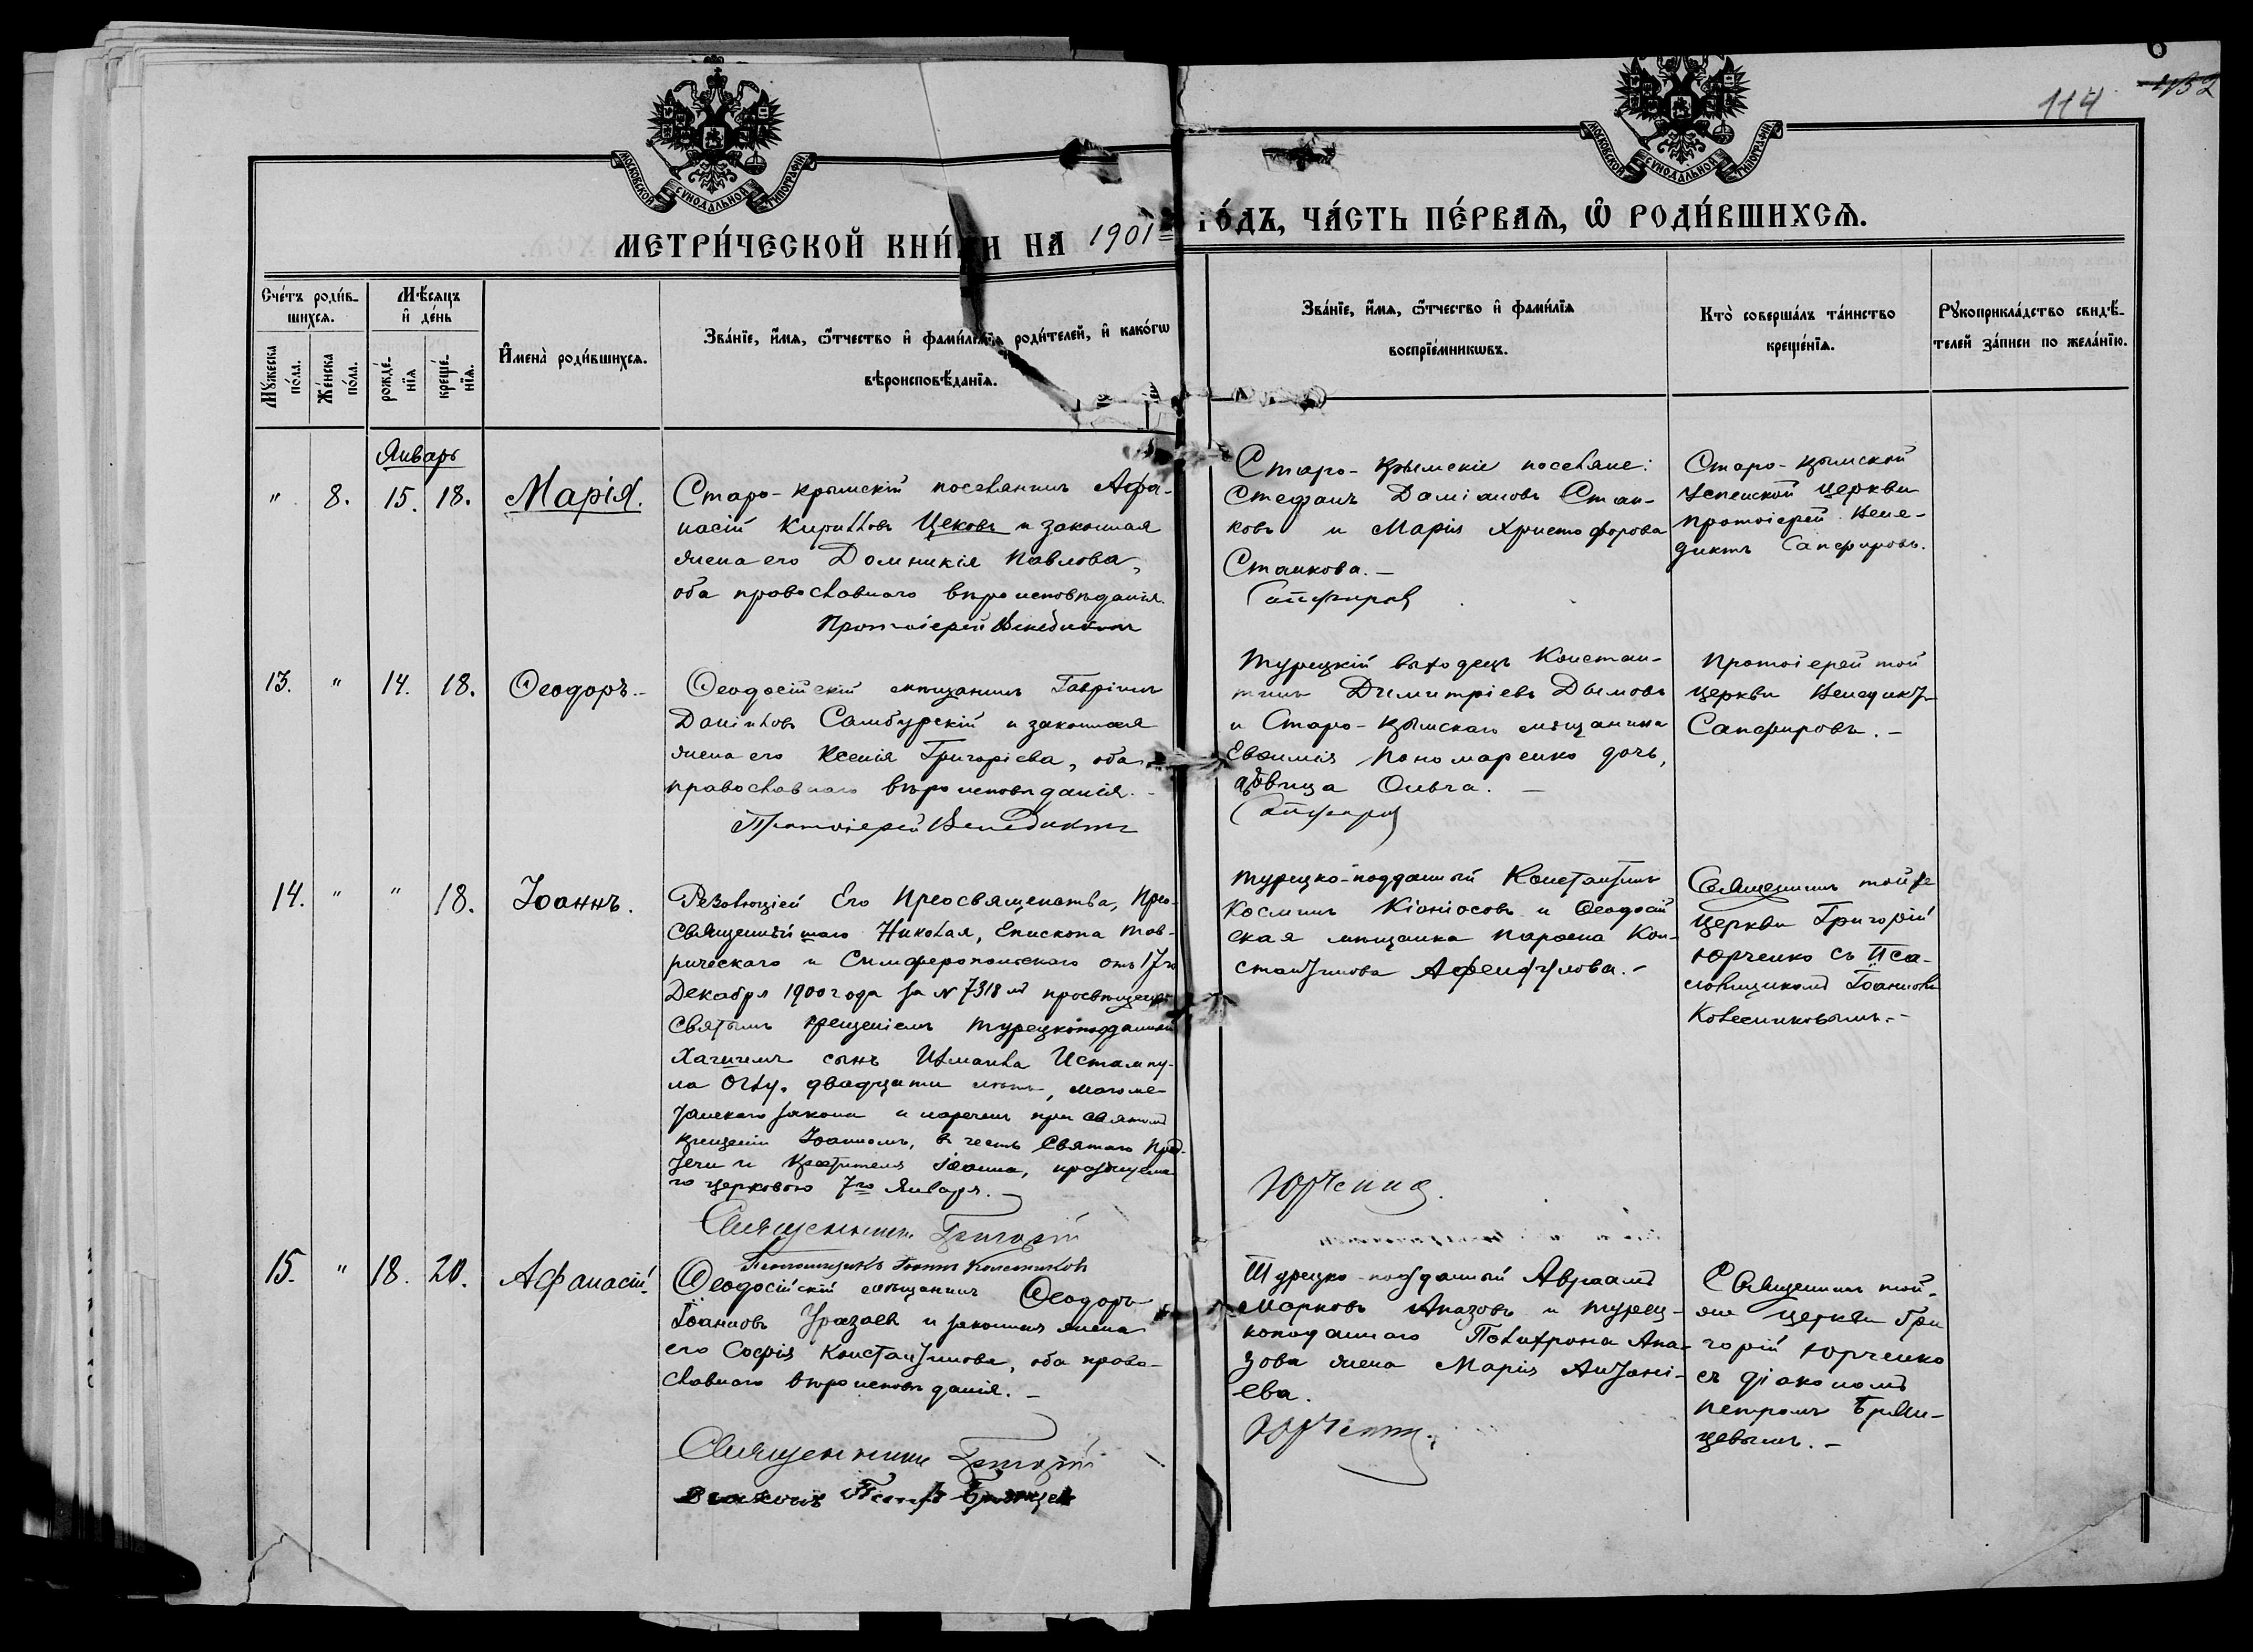 114
МОСКОВСКОЙ СУНОДАЛЬНОЙ ТИПОГРАФІИ
МОСКОВСКОЙ СУНОДАЛЬНОЙ ТИПОГРАФІИ
МЕТРИ́ЧЕСКОЙ КНИ́ГИ НА 1901 ГО́ДЪ, ЧА́СТЬ ПЕ́РВАѦ, Ѿ РОДИ́ВШИХСѦ.
Сче́тъ роди́в-
шихсѧ.
Мѣ́сѧцъ
и҆ де́нь
Мꙋ́жеска
по́ла.
Же́нска
по́ла.
рожде́-
нїѧ
креще́-
нїѧ.
И҆мена̀ роди́вшихсѧ.
Зва́нїе, и҆́мѧ, ѻ҆́тчество и҆ фами́лїѧ роди́телей, и҆ како́гѡ
вѣроисповѣ́данїѧ.
Зва́нїе, и҆́мѧ, ѻ҆́тчество и҆ фами́лїѧ
воспрїе́мникѡвъ.
Кто̀ соверша́лъ та́инство
креще́нїѧ.
Рꙋкоприкла́дство свидѣ́-
телей за́писи по жела́нїю.
Январь
" 8. 15. 18. Марія.
Старо-крымскій поселянинъ Афа-
насій Кирилловъ Цековъ и законная
жена его Домникія Павлова,
оба православнаго вѣроисповѣданія.
Протоіерей Венедиктъ
Старо-крымскіе поселяне:
Стефанъ Даміановъ Стан-
ковъ и Марія Христофорова
Станкова.—
Сапфировъ
Старо-крымской
Успенской церкви
протоіерей Вене-
диктъ Сапфировъ.
13. " 14. 18. Ѳеодоръ.-
Ѳеодосійскій мѣщанинъ Гавріилъ
Даніиловъ Самбурскій и законная
жена его Ксенія Григоріева, оба
православнаго вѣроисповѣданія.-
Протоіерей Венедиктъ
Турецкій выходецъ Констан-
тинъ Димитріевъ Дымовъ
и Старо-Крымскаго мѣщанина
Евѳимія Пономаренко дочь,
дѣвица Ольга.—
Сапфировъ
Протоіерей той
церкви Венедиктъ
Сапфировъ.-
14. " " 18. Іоаннъ.
Резолюціей Его Преосвященства, Прео-
священнѣйшаго Николая, Епископа Тав-
рическаго и Симферопольскаго отъ 17го
Декабря 1900 года за № 7318мъ просвѣщенъ
Святымъ крещеніемъ турецкоподданный
сынъ
двадцати лѣтъ, магоме-
танскаго закона и нареченъ при святомъ
крещеніи Іоанномъ, въ честь Святаго Пред-
течи и Крестителя Іоанна, празднуема-
го церковью 7го Января.—
Священникъ Григорій
Псаломщикъ Іоаннъ Колесниковъ
Турецко-подданный Константинъ
Косминъ Кіоніосовъ и Ѳеодосій-
ская мѣщанка Параскева Кон-
стантинова .-
Юрченко.
Священникъ той же
церкви Григорій
Юрченко съ Пса-
ломщикомъ Іоанномъ
Колесниковымъ.-
15. " 18. 20. Афанасій.
Ѳеодосійскій мѣщанинъ Ѳеодоръ
Іоанновъ Уразаев и законная жена
его Софія Константинова, оба право-
славнаго вѣроисповѣданія.-
Священникъ Григорій
Діаконъ Петръ Брянцев
Турецко-подданный Авраамъ
Марковъ Апазовъ и турец-
коподданнаго Полихрона Апа-
зова жена Марія Антоні-
ева.
Юрченко.
Священникъ той-
же церкви Гри
горій Юрченко
съ діакономъ
Петромъ Брян-
цевымъ.-